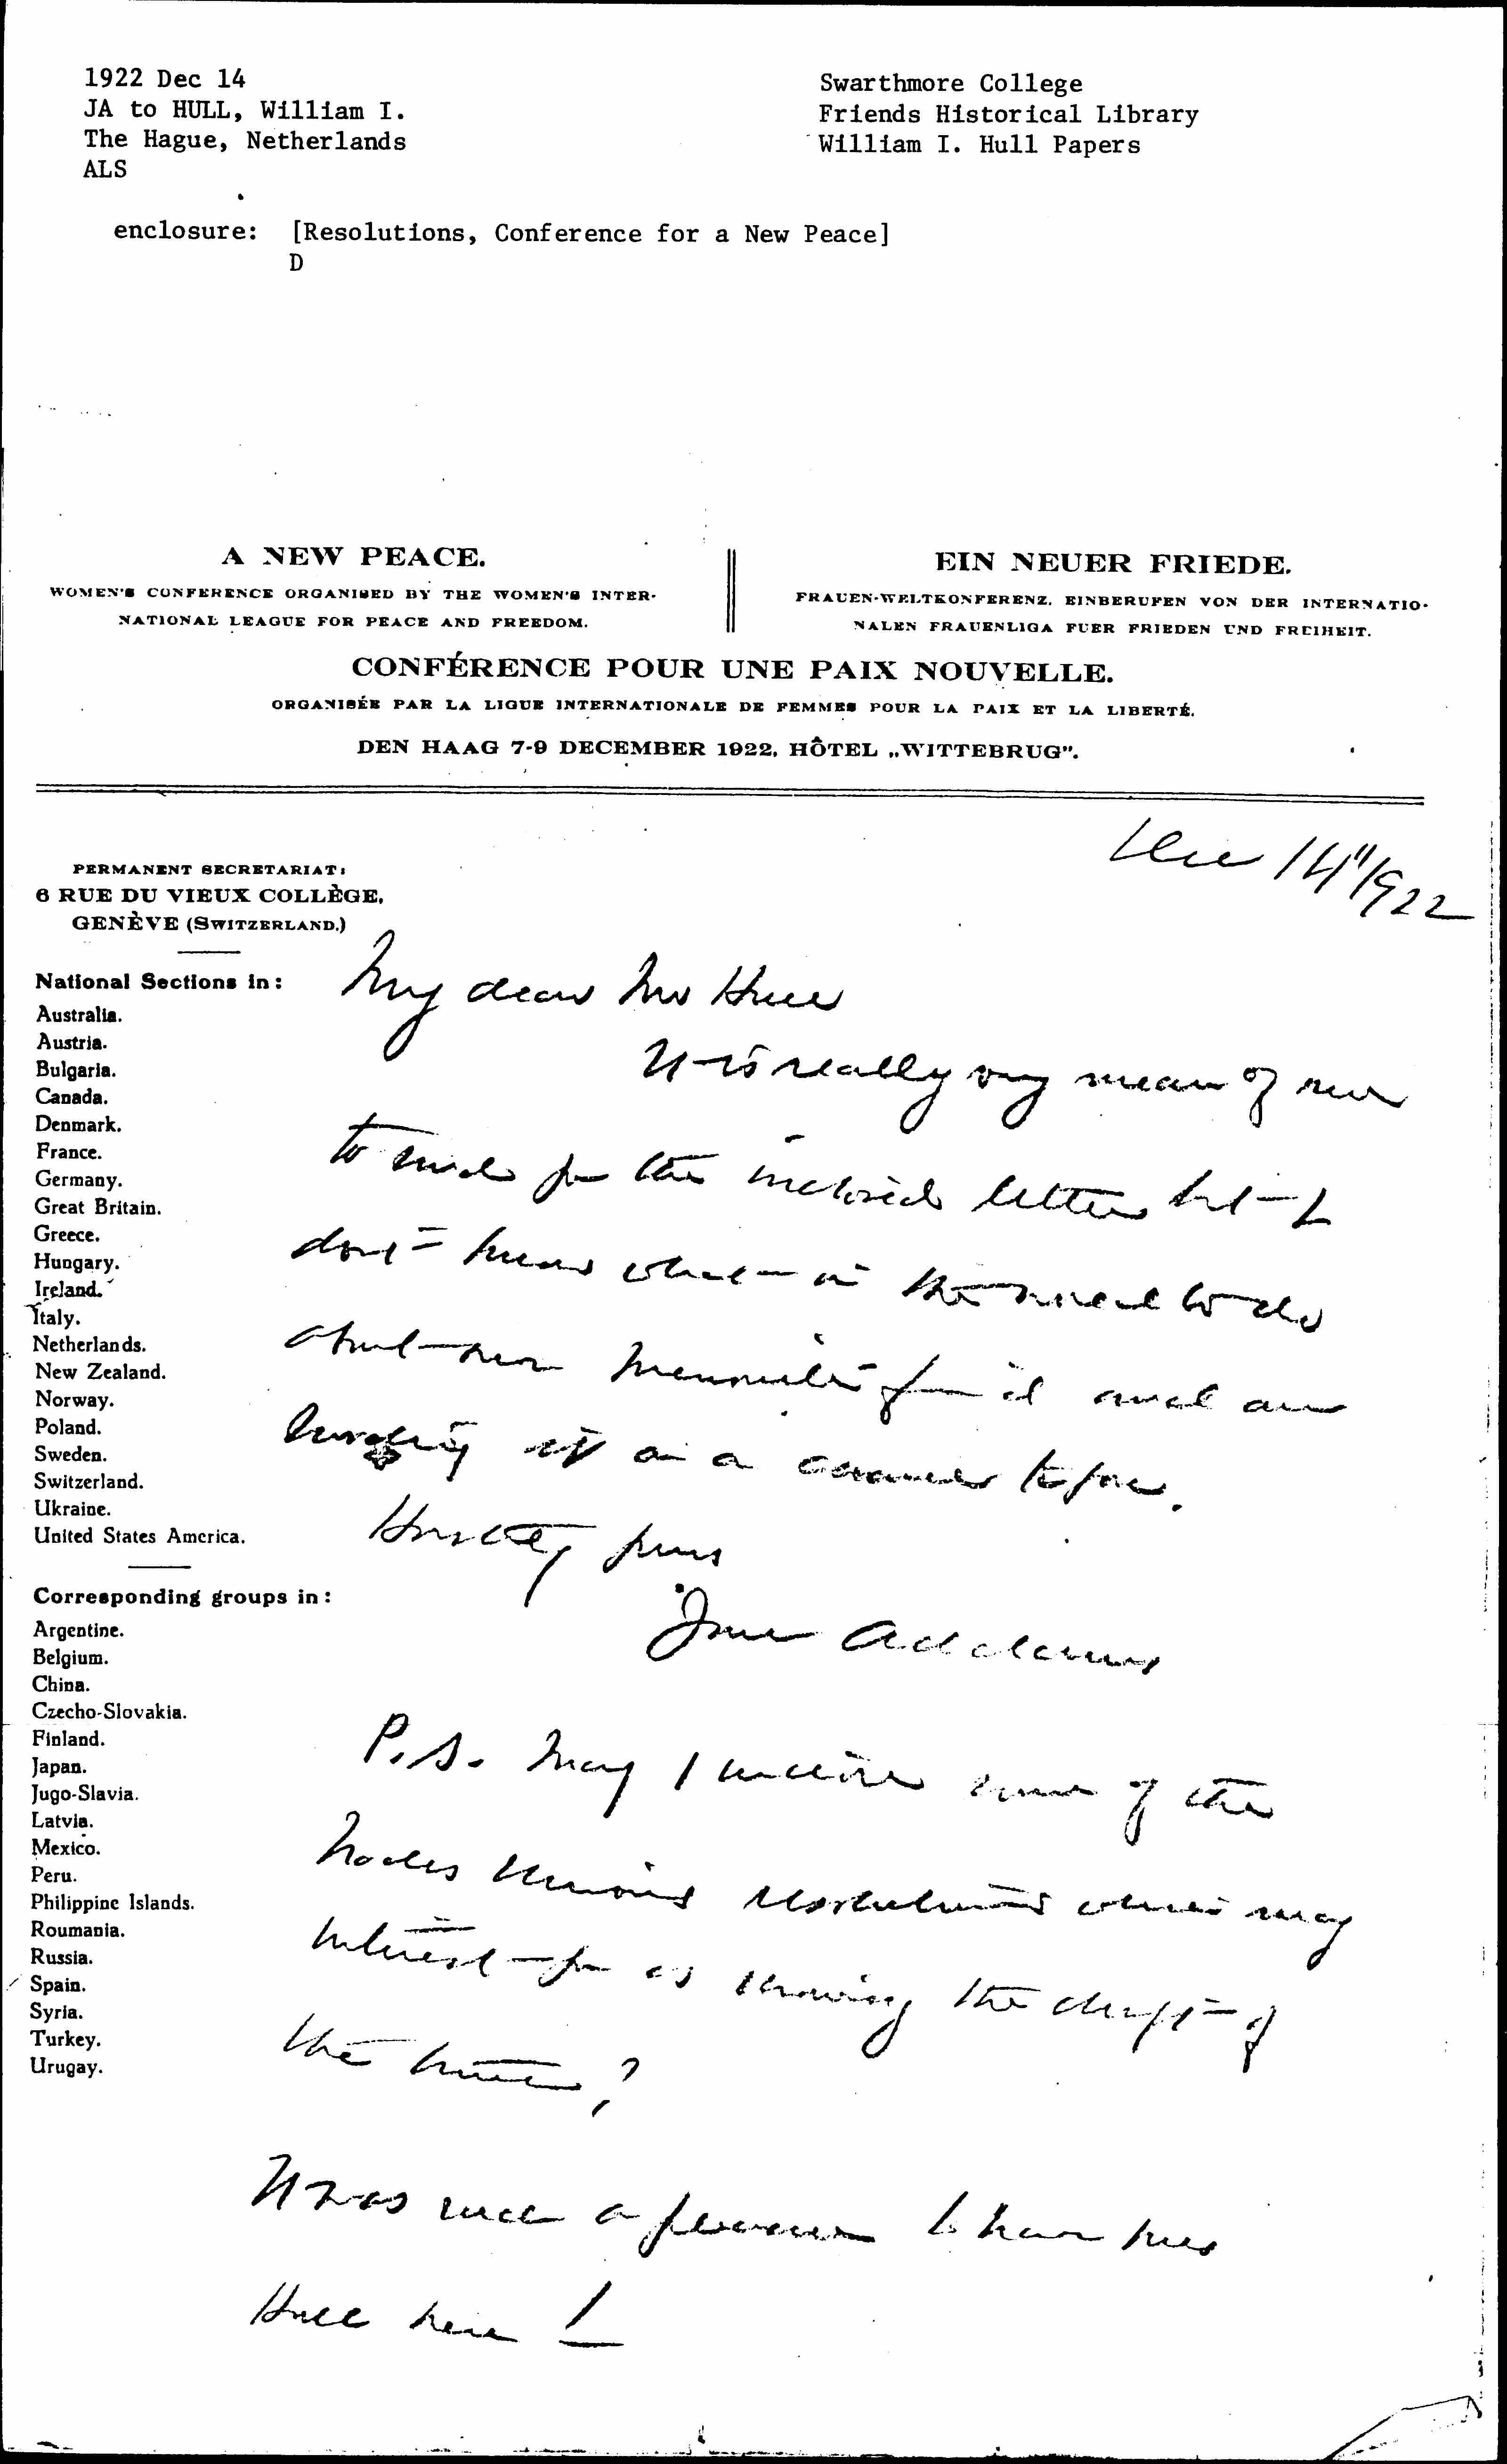 1922 Dec 14
JA to HULL, William I.
The Hague, Netherlands
ALS
Swarthmore College
Friends Historical Library
William I. Hull Papers
enclosure: [Resolutions, Conference for a New Peace]
D
A NEW PEACE.
WOMEN'S CONFERENCE ORGANISED BY THE WOMEN'S INTER-
NATIONAL LEAGUE FOR PEACE AND FREEDOM.
EIN NEUER FRIEDE.
FRAUEN-WELTKONFERENZ, EINBERUFEN VON DER INTERNATIO-
NALEN FRAUENLIGA FUER FRIEDEN UND FREIHEIT.
CONFÉRENCE POUR UNE PAIX NOUVELLE.
ORGANISÉE PAR LA LIGUE INTERNATIONALE DE FEMMES POUR LA PAIX ET LA LIBERTÉ.
DEN HAAG 7-9 DECEMBER 1922, HÔTEL „WITTEBRUG".
Dec 14" 1922
PERMANENT SECRETARIAT:
6 RUE DU VIEUX COLLÈGE,
GENÈVE (SWITZERLAND.)
National Sections in:
Australia.
Austria.
Bulgaria.
Canada.
Denmark.
France.
Germany.
Great Britain.
Greece.
Hungary.
Ireland.
Italy.
Netherlands.
New Zealand.
Norway.
Poland.
Sweden.
Switzerland.
Ukraine.
United States America.
Corresponding groups in:
Argentine.
Belgium.
China.
Czecho-Slovakia.
Finland.
Japan.
Jugo-Slavia.
Latvia.
Mexico.
Peru.
Philippine Islands.
Roumania.
Russia.
Spain.
Syria.
Turkey.
Urugay.
My dear Mr Hull
It is really very mean of me
to send you the inclosed letter but I
don't know what in the world to do
about
it and am
it on a
before.
yours
Jane Addams
P.S. May I inclose some of the
Trades Unions resolutions which may
interest you as showing the drift of
the times?
It was such a pleasure to have Mrs
Hull here!